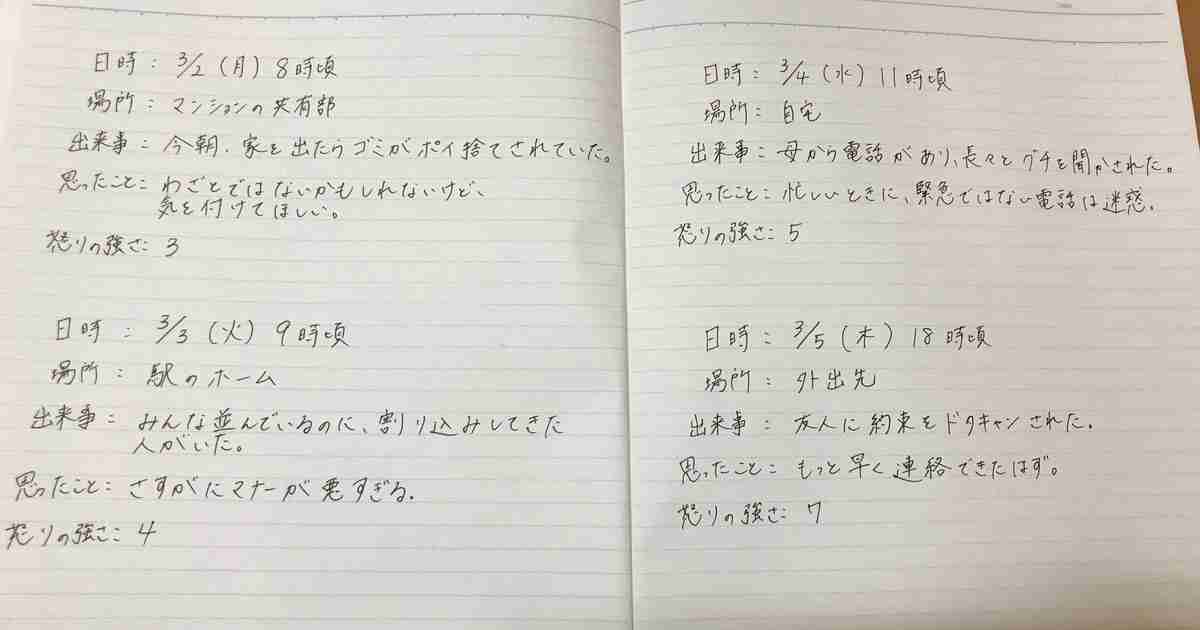 日時：3/2（月）8時頃
場所：マンションの共有部
出来事：今朝、家を出たらゴミがポイ捨てされていた。
思ったこと：わざとではないかもしれないけど、
気を付けてほしい。
怒りの強さ：3
日時：3/3（火）9時頃
場所：駅のホーム
出来事：みんな並んでいるのに、割り込みしてきた
人がいた。
思ったこと：さすがにマナーが悪すぎる。
怒りの強さ：4
日時：3/4（水）11時頃
場所：自宅
出来事：母から電話があり、長々とグチを聞かされた。
思ったこと：忙しいときに、緊急ではない電話は迷惑。
怒りの強さ：5
日時：3/5（木）18時頃
場所：外出先
出来事：友人に約束をドタキャンされた。
思ったこと：もっと早く連絡できたはず。
怒りの強さ：7